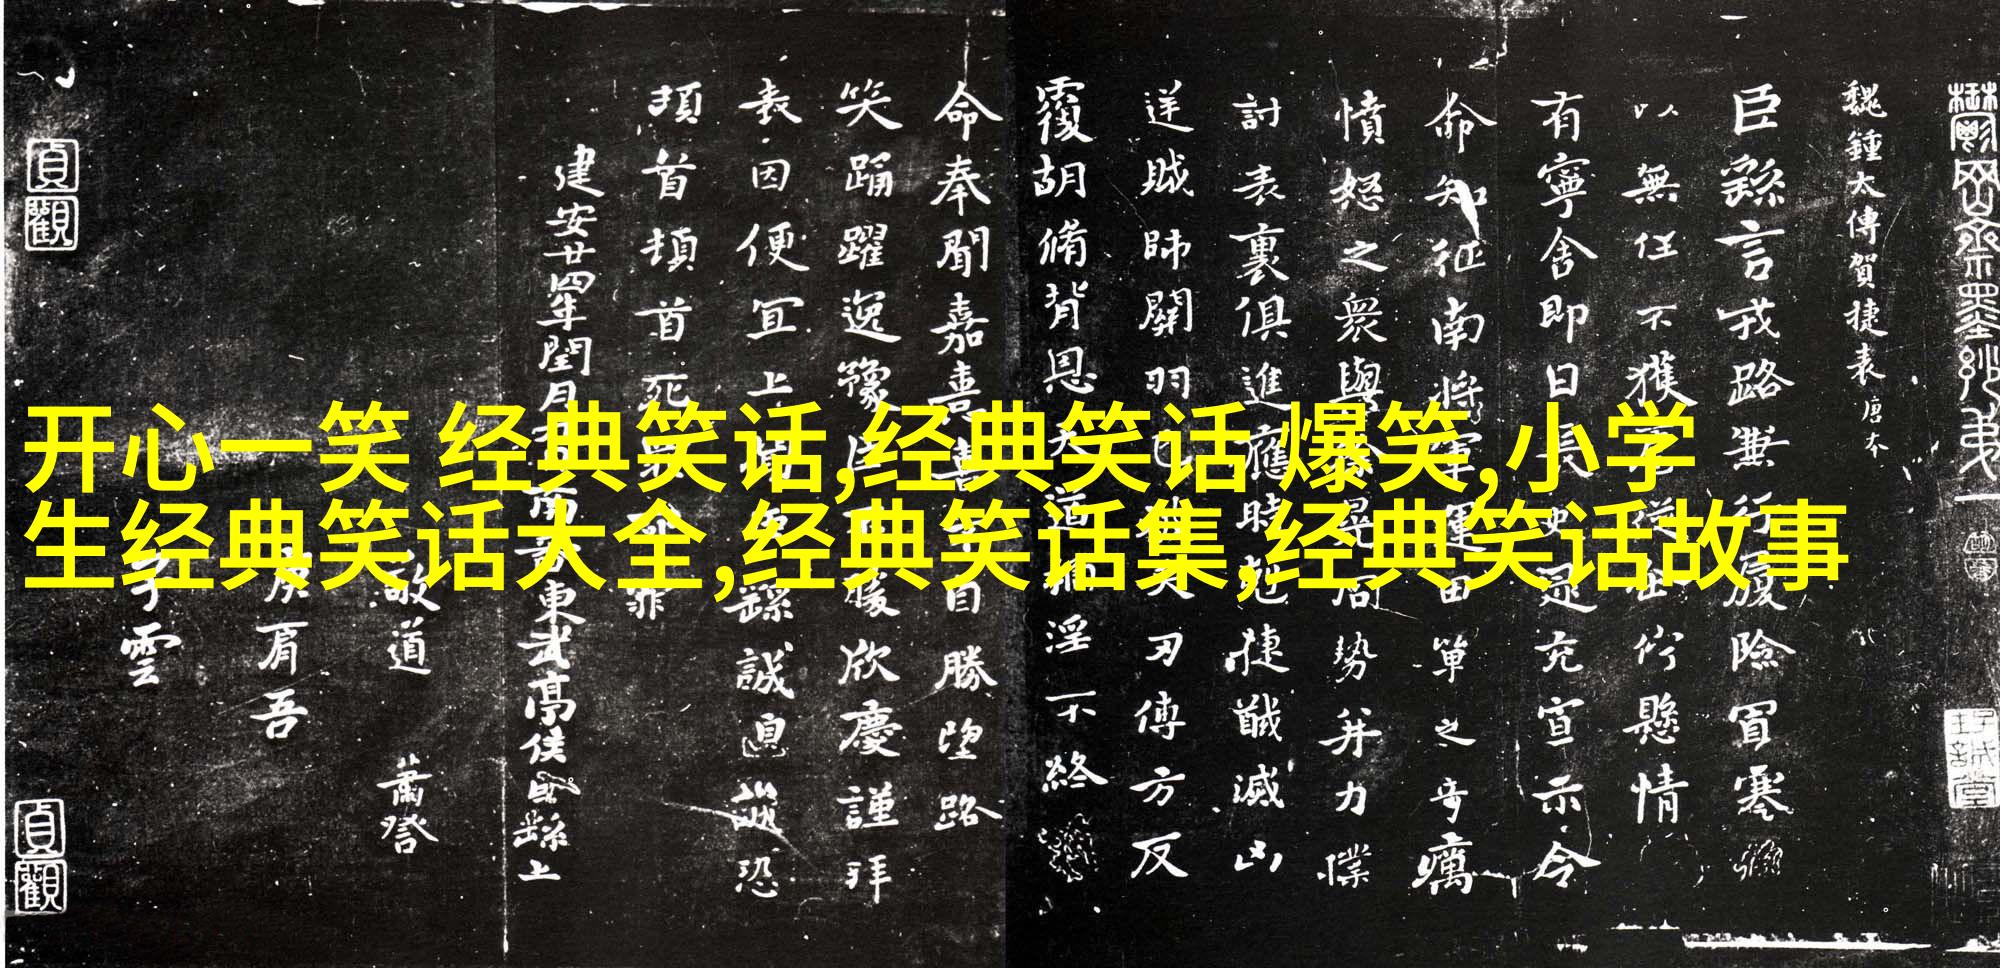 开心一笑 经典笑话,经典笑话 爆笑,小学
生经典笑话大全,经典笑话集,经典笑话故事
魏鍾太傅賀捷表 唐本
臣繇言戎路兼行履險冒寒
以無任不獲扈從企佇懸情
有寧舍即日長史逯充宣示令
命知征南將軍運田單之奇厲
憤怒之衆與徐晃同勢并力撲
討表裏俱進應時剋捷馘滅凶
逆賊帥關羽已被矢刃傅方反
覆胡脩背恩天道禍淫不終
命奉聞嘉憙喜不自勝望路
笑踊躍逸豫臣不勝欣慶謹拜
表因便宜上聞臣繇誠惶誠恐
頓首頓首死罪死罪
建安廿四年閏月九日南蕃東武亭侯臣繇上
敬道
肩吾
子雲
貞觀
貞觀